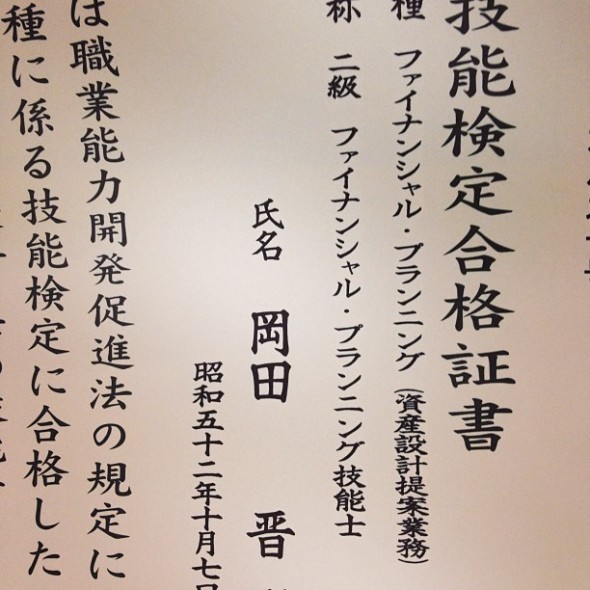 技能検定合格証書
種 ファイナンシャル・プランニング（資産設計提案業務）
称 二級 ファイナンシャル・プランニング技能士
氏名 岡田 晋
昭和五十二年十月七日
は職業能力開発促進法の規定に
種に係る技能検定に合格した